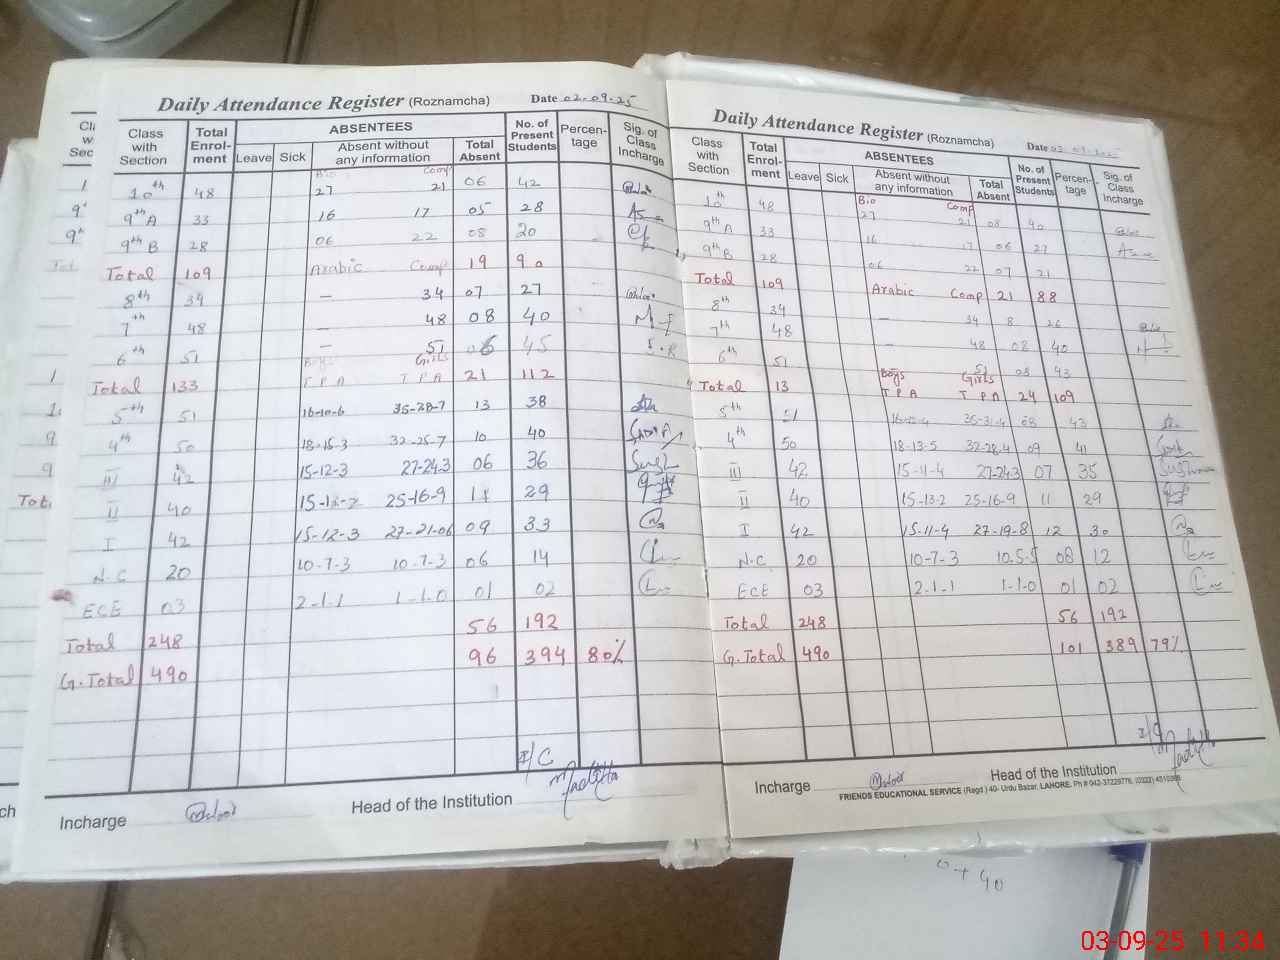 Daily Attendance Register (Roznamcha) Date 02-09-25
Class with Section Total Enrol-ment ABSENTEES No. of Present Students Percen-tage Sig. of Class Incharge
Leave Sick Absent without any information Total Absent
Bio Comp
10th 48 27 21 06 42
9th A 33 16 17 05 28
9th B 28 06 22 08 20
Total 109 Arabic Comp 19 90
8th 34 — 34 07 27
7th 48 — 48 08 40
6th 51 — 51 06 45
Boys Girls
Total 133 T P A T P A 21 112
5th 51 16-10-6 35-28-7 13 38
4th 50 18-15-3 32-25-7 10 40
III 42 15-12-3 27-24-3 06 36
II 40 15-13-2 25-16-9 11 29
I 42 15-12-3 27-21-06 09 33
N.C 20 10-7-3 10-7-3 06 14
ECE 03 2-1-1 1-1-0 01 02
Total 248 56 192
G.Total 490 96 394 80%
I/C
Incharge Head of the Institution
Daily Attendance Register (Roznamcha) Date
Class with Section Total Enrol-ment ABSENTEES No. of Present Students Percen-tage Sig. of Class Incharge
Leave Sick Absent without any information Total Absent
Bio Comp
10th 48 27 21 08 40
9th A 33 16 17 06 27
9th B 28 06 22 07 21
Total 109 Arabic Comp 21 88
8th 34 — 34 8 26
7th 48 — 48 08 40
6th 51 51 08 43
Boys Girls
Total 13 T P A T P A 24 109
5th 51 35-31-4 08 43
4th 50 18-13-5 32-28-4 09 41
III 42 15-11-4 27-24-3 07 35
II 40 15-13-2 25-16-9 11 29
I 42 15-11-4 27-19-8 12 30
N.C 20 10-7-3 10-5-5 08 12
ECE 03 2-1-1 1-1-0 01 02
Total 248 56 192
G.Total 490 101 389 79%
I/C
Incharge Head of the Institution
FRIENDS EDUCATIONAL SERVICE (Regd.) 40- Urdu Bazar, LAHORE.
03-09-25 11:34